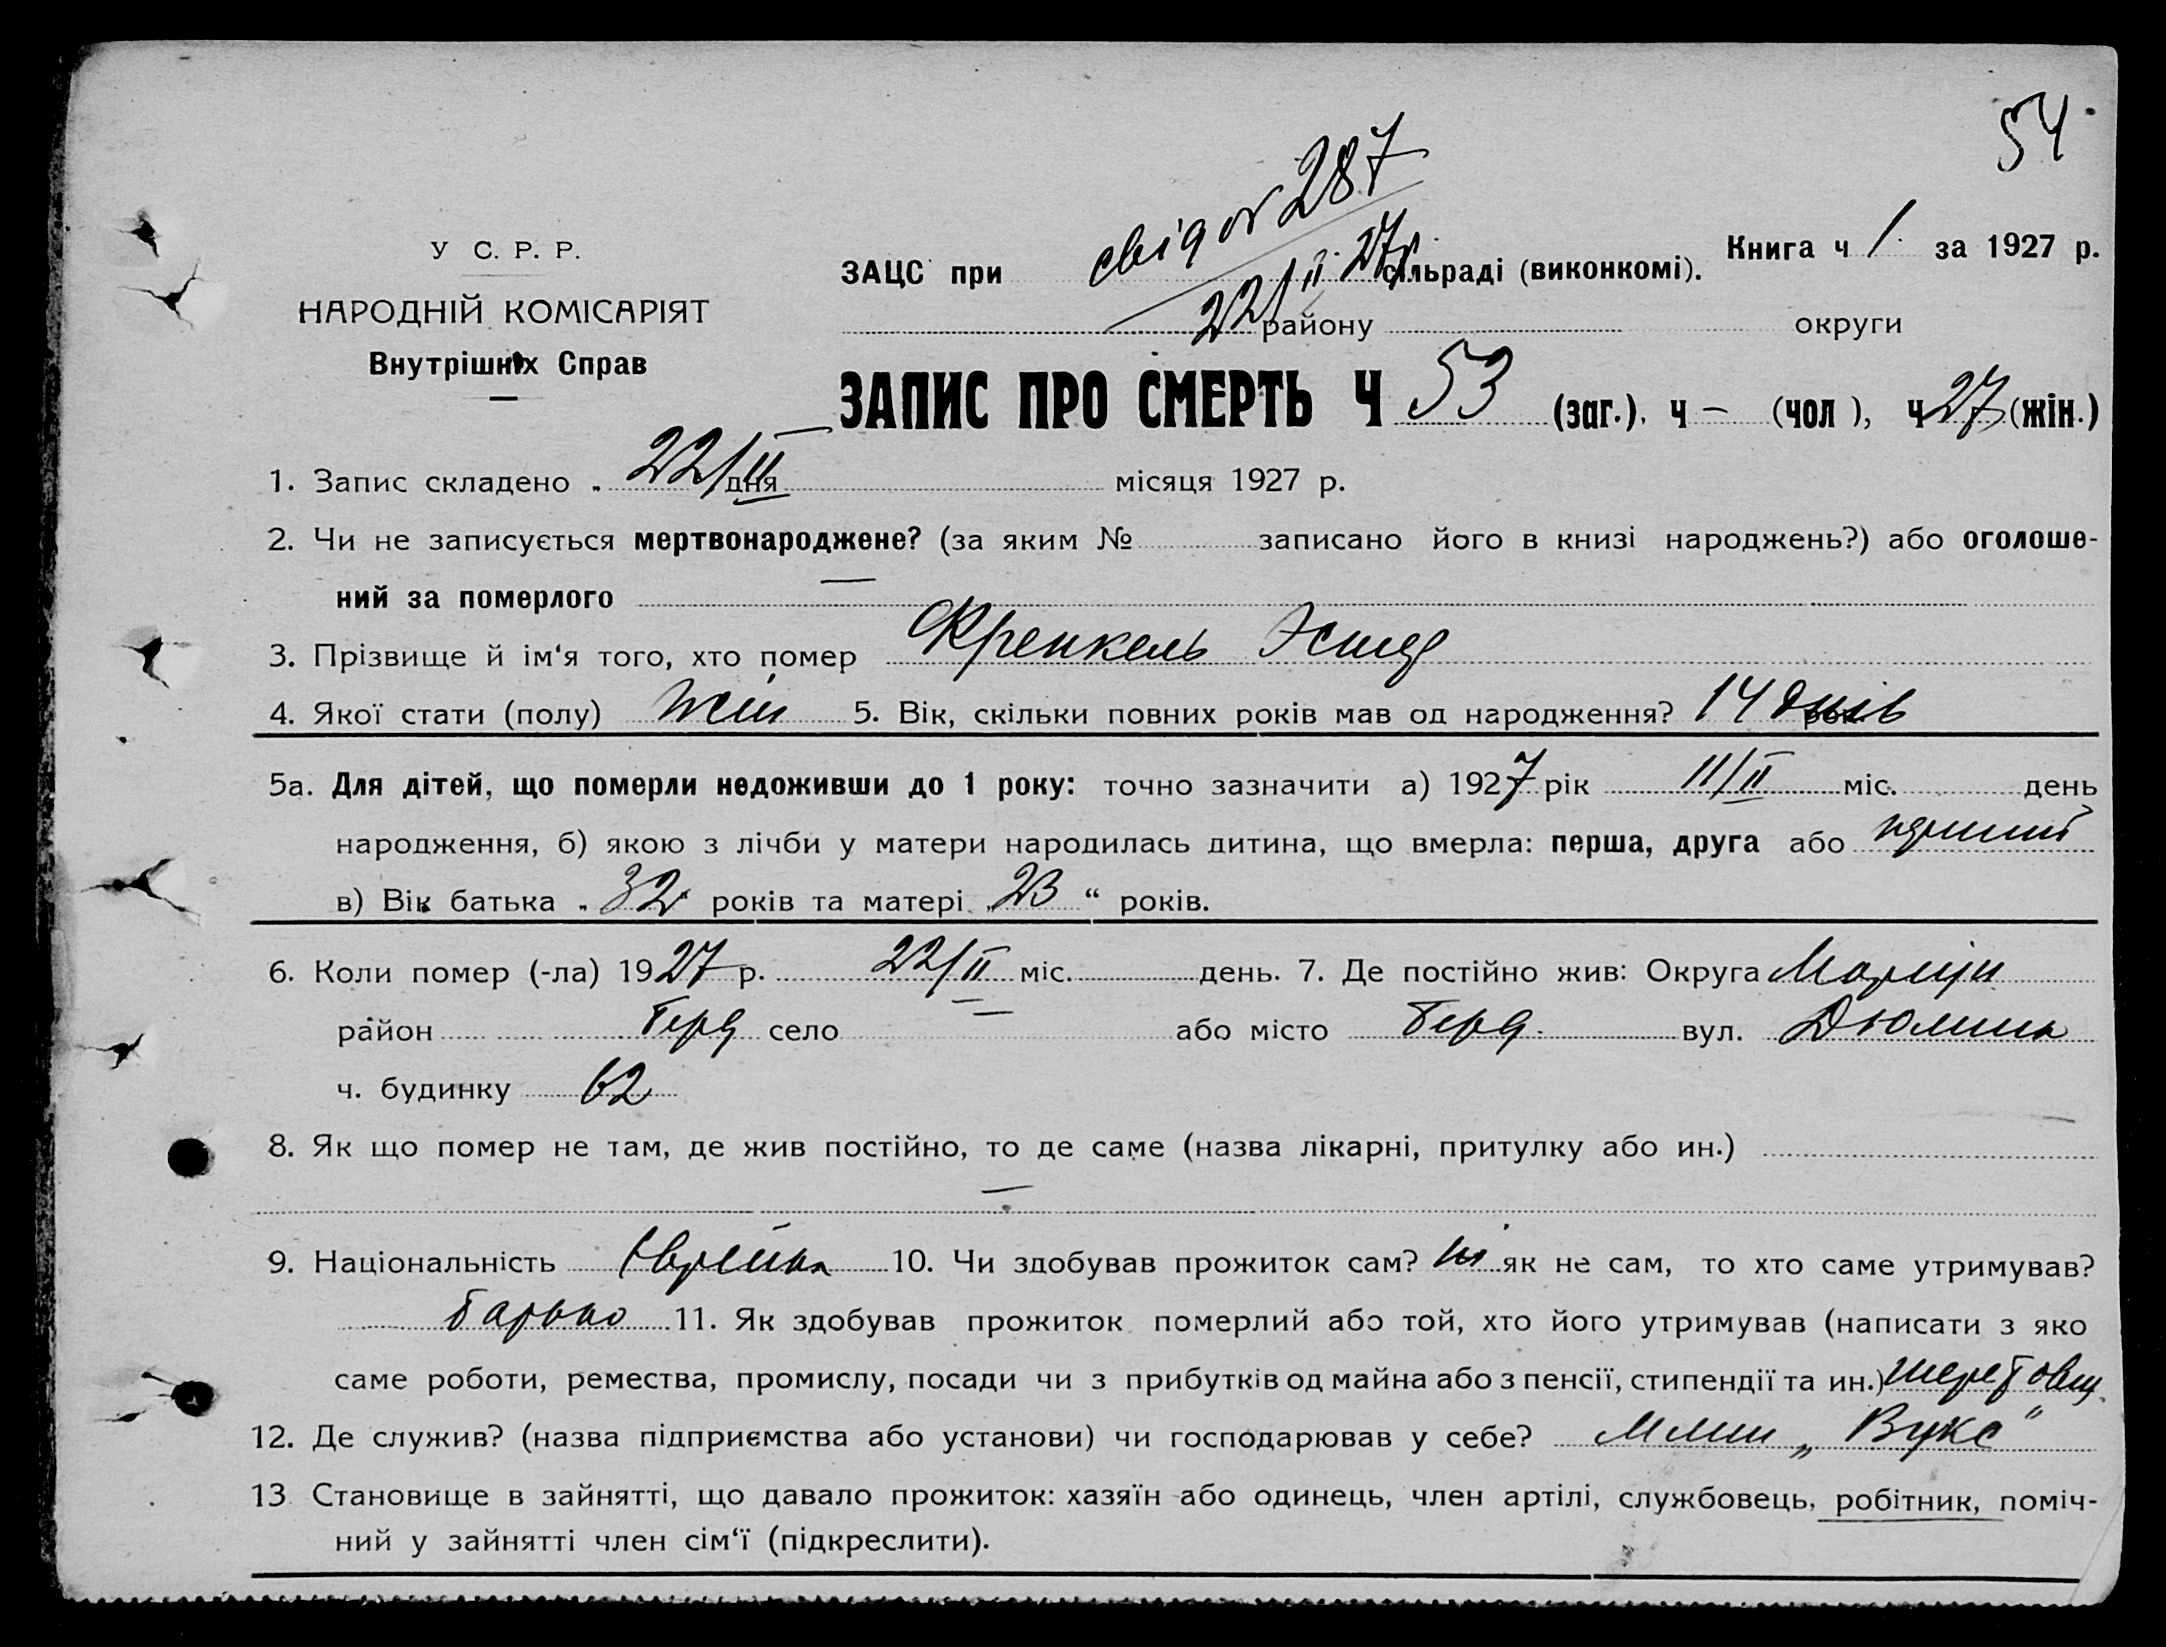 54
свідоц 287
22/II 27р.
У С. Р. Р.
НАРОДНІЙ КОМІСАРІЯТ
Внутрішніх Справ
Книга ч 1. за 1927 р.
ЗАЦС при сільраді (виконкомі).
району округи
ЗАПИС ПРО СМЕРТЬ Ч 53 (заг.). ч – (чол ), ч 27 (жін.)
1. Запис складено „ 22/II дня місяця 1927 р.
2. Чи не записується мертвонароджене? (за яким № записано його в книзі народжень?) або оголоше-
ний за померлого —
3. Прізвище й ім‘я того, хто помер Френкель Эстер
4. Якої стати (полу) жін 5. Вік, скільки повних років мав од народження? 14 днів рок.
5а. Для дітей, що померли недоживши до 1 року: точно зазначити а) 1927 рік 11/II міс. день
народження, б) якою з лічби у матери народилась дитина, що вмерла: перша, друга або
в) Вік батька „ 32 років та матері „ 23 “ років.
6. Коли помер (-ла) 1927 р. 22/II міс. день. 7. Де постійно жив: Округа Маріуп
район Берд село — або місто Берд. вул.
ч. будинку 62
8. Як що помер не там, де жив постійно, то де саме (назва лікарні, притулку або ин.)
—
9. Національність Єврейка 10. Чи здобував прожиток сам? ні як не сам, то хто саме утримував?
батько 11. Як здобував прожиток померлий або той, хто його утримував (написати з яко
саме роботи, ремества, промислу, посади чи з прибутків од майна або з пенсії, стипендії та ин.)
12. Де служив? (назва підприємства або установи) чи господарював у себе? Млин „Вукс“
13 Становище в зайнятті, що давало прожиток: хазяїн або одинець, член артілі, службовець, робітник, поміч-
ний у зайнятті член сім‘ї (підкреслити).